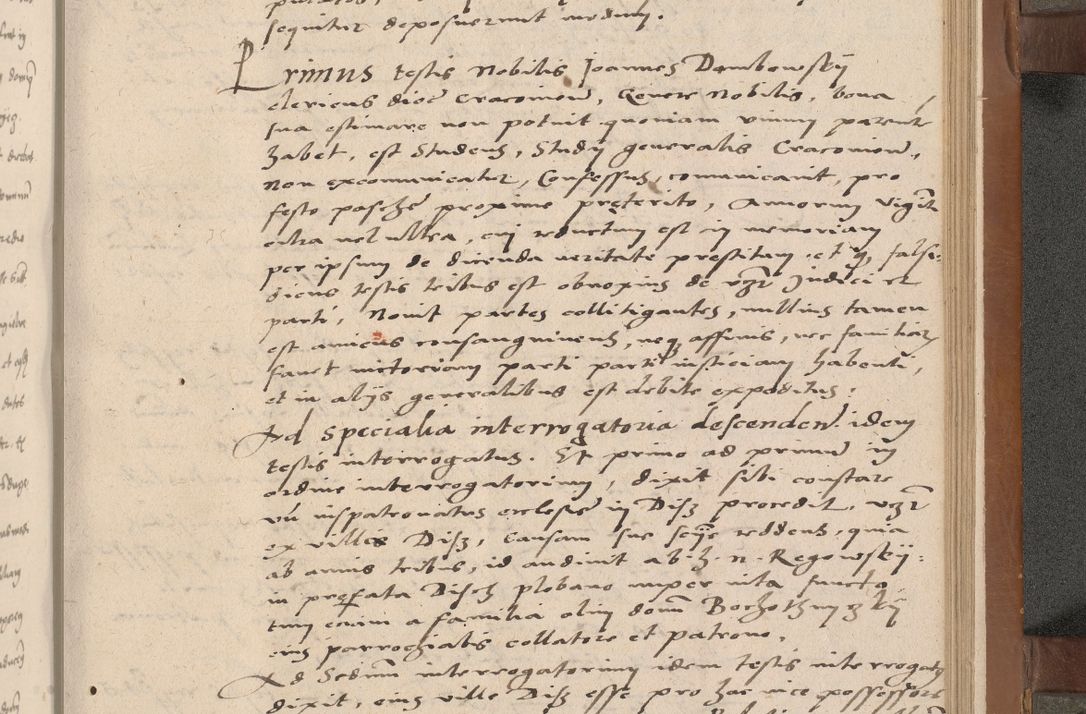 sequitur deposuerunt modum.
Primus testis Nobilis Joannes Dambowskÿ
clericus dioc Cracovien, Genere Nobilis, bona
sua estimare non potuit quoniam vivum parente
habet, est Studens, Studÿ generalis Cracovien,
Non excomunicatus, Confessus, comunicavit, pro
festo pasche proxime preterito, Annorum viginti
citra vel ultra, cui reductum est in memoriam
per ipsum de dicenda veritate prestitam et q falsi
dicus testis tribus est obnoxius de vzt Judici et
parti, Novit partes collitigantes, nullius tamen
est amicus consanguineus, neq affinis, nec familiaris
favet victoriam parti parti iusticiam habenti,
et in alÿs generalibus est debite expeditus:
Ad specialia interrogatoria descenden. idem
testis interrogatus. Et primo ad primum in
ordine interrogatorium, dixit sibi constare
ius patronatus ecclesie in Disz procedit, vzt
ex villa Disz, Causam sue scie reddens, quia
ab annis tribus, id audivit ab h. n. Regowskÿ:
in prefata Disch plobano nuper vita functo
tum eciam a familia olim domi
eius parrochialis collatore et patrono.
Ad Secdum interrogatorium idem testis interrogatus
dixit, eius ville Disz esse pro hac vice possessore